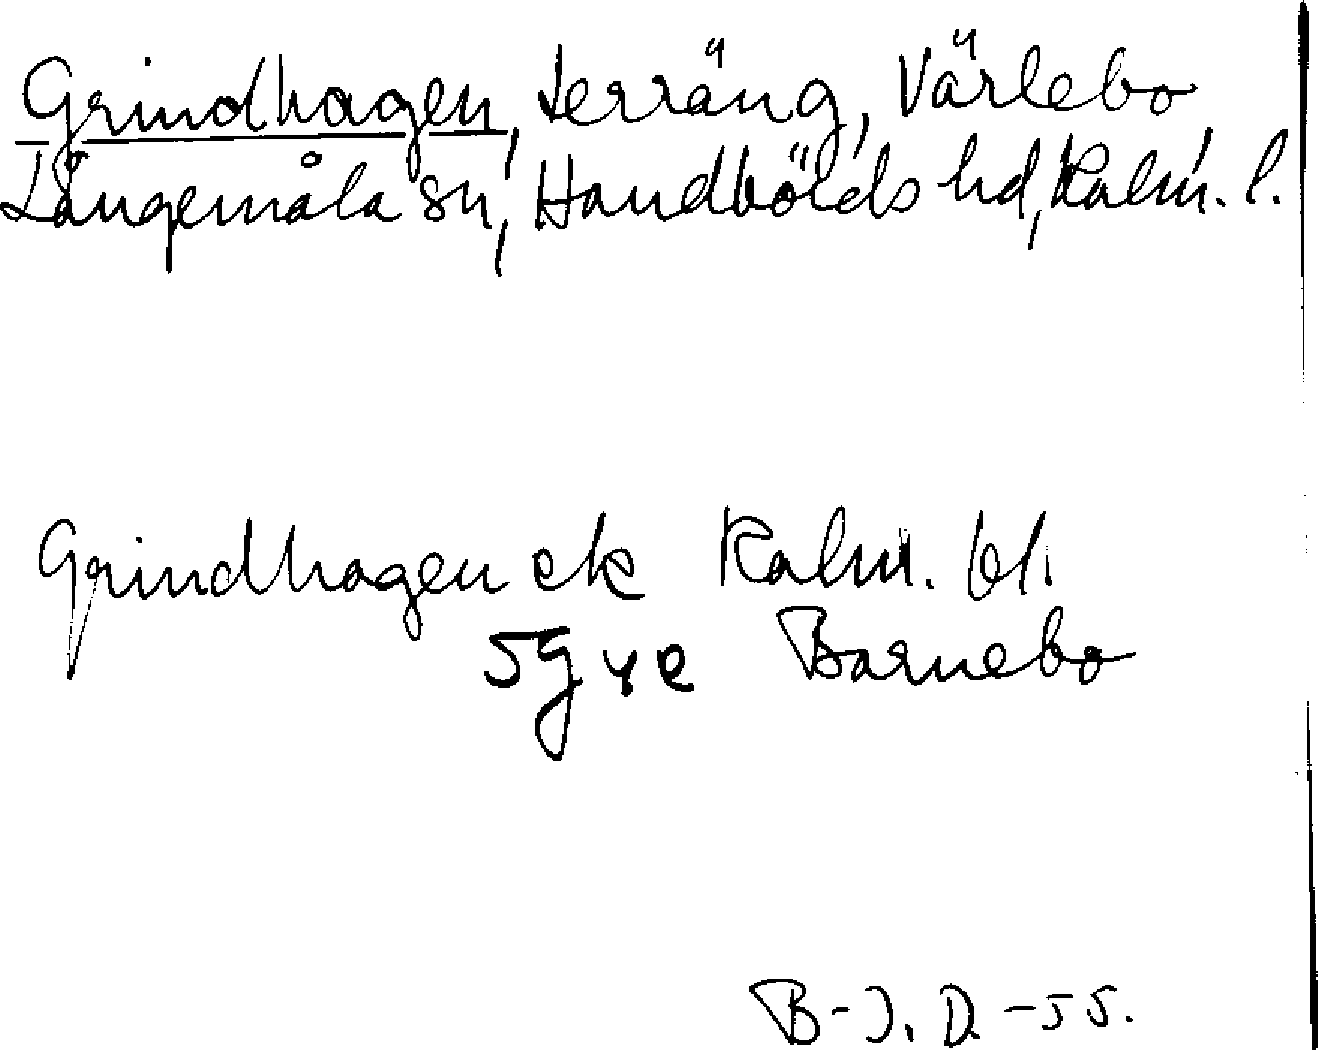 Grindhagen, terräng, Värlebo
Långemåla sn, Handbölds hd, Kalm. l.
Grindhagen ek Kalm. bl.
5g ye Barnebo
B-J. D. -55.